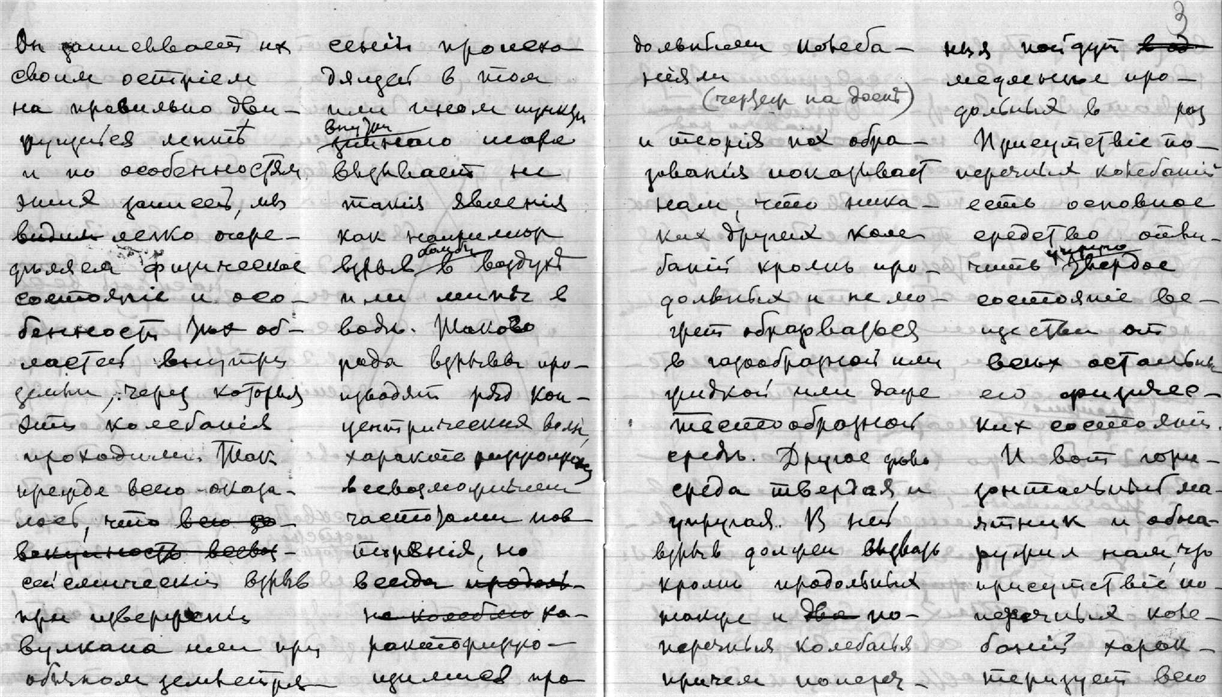 3
Он записывает их
своим остріем
на правильно дви-
жущейся лентѣ
и по особенностям
этих записей, мы
видим легко опре-
дѣляем физическое
состояніе и осо-
бенность тѣх об-
ластей внутри
земли, через которыя
эти колебанія
проходили. Так
прежде всего оказа-
лось, что всего со-
вокупность всевоз-
сейсмическій взрыв
при изверженіи
вулкана или при
обычном землетря-
сеніи происхо-
дящей в том
или ином пункте
внутри
земного шара
вызывает не
такія явленія
как например
бомбы
взрыв в воздухѣ
или мины в
водѣ. Такого
рода взрывы про-
изводят ряд кон-
центрическия волн,
характеризующихся
всевозможными
частотами пов-
торенія, но
всегда продоль-
но колебаю ха-
рактеризую-
щимися про-
дольными колеба-
ніями
(чертеж на доскѣ)
и теорія их обра-
зованія показывает
нам, что ника-
ких других коле
баній кромѣ про-
дольных и не мо-
жет образоваться
в газообразной или
жидкой или даже
тестообразной
средѣ. Другое дѣло
среда твердая и
упругая. В ней
взрыв должен вызвать
кромѣ продольных
также и два по-
перечныя колебанья
причем попереч-
ныя пойдут в од
медленнѣе про-
дольных в раз
Присутствіе по-
перечных колебаній
есть основное
средство отли-
упруго
чить твердое
состояніе ве-
щества от
всех остальных
его физичес-
ких состояній.
И вот гори-
зонтальный ма-
ятник и обна-
ружил нам, что
присутствіе по-
перечных коле-
баній харак-
теризует всю